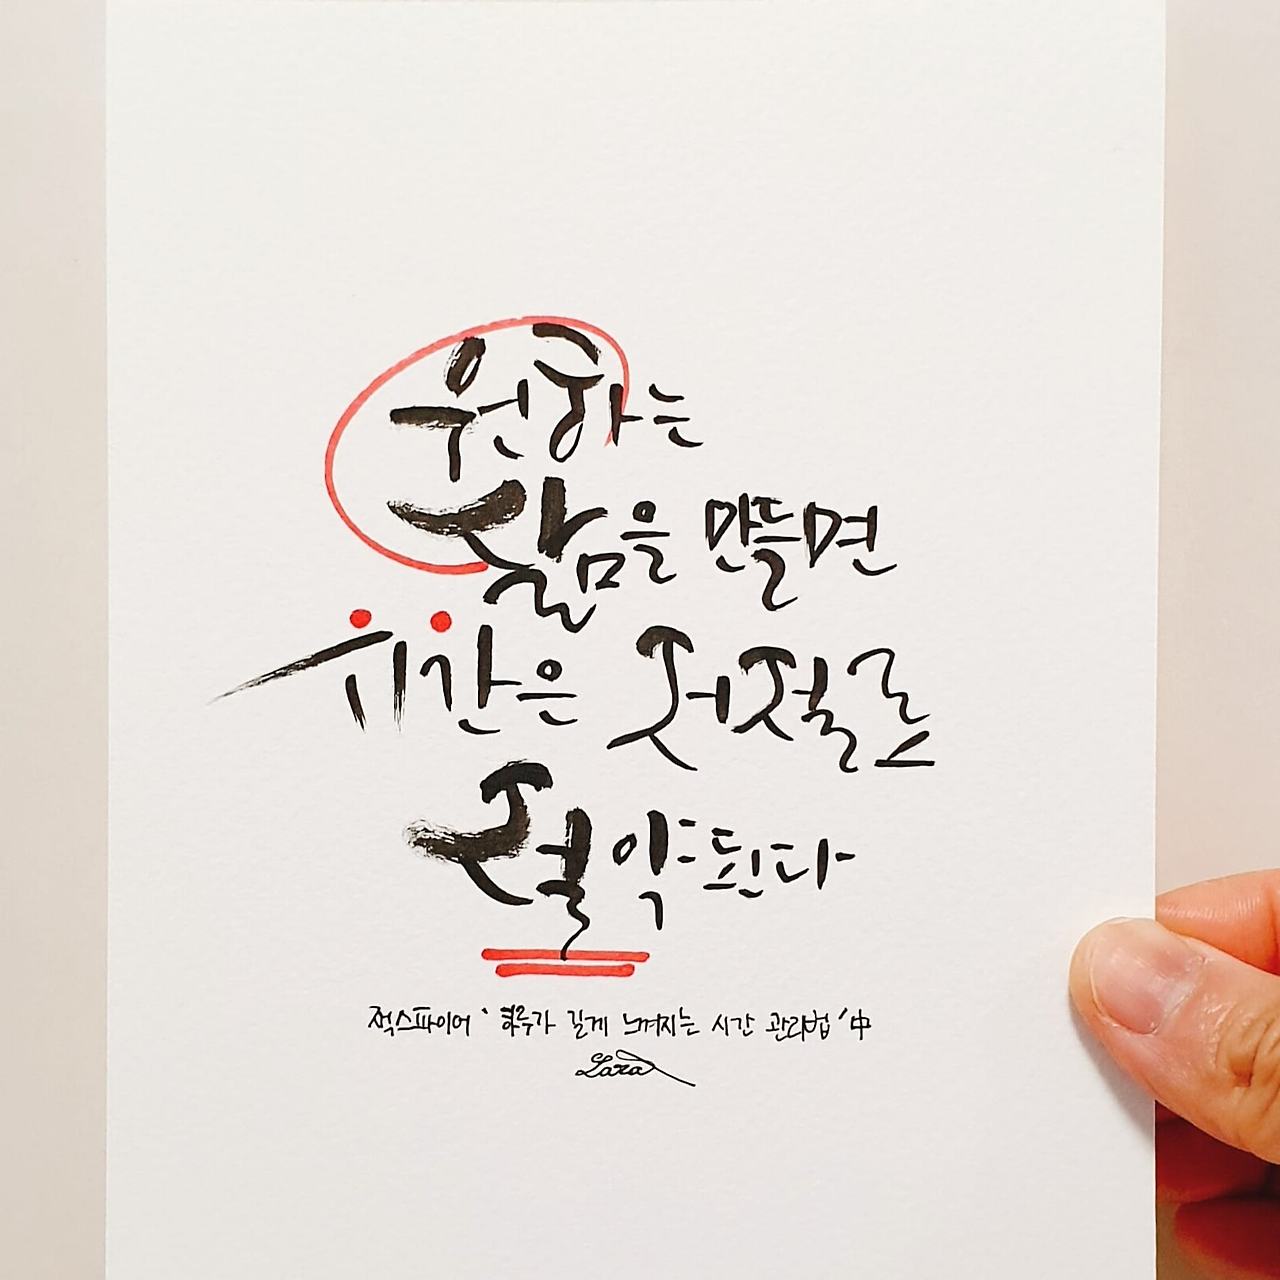 원하는
삶을 만들면
시간은 저절로
절약된다
적스파이어 '하루가 길게 느껴지는 시간 관리법' 中
Lara